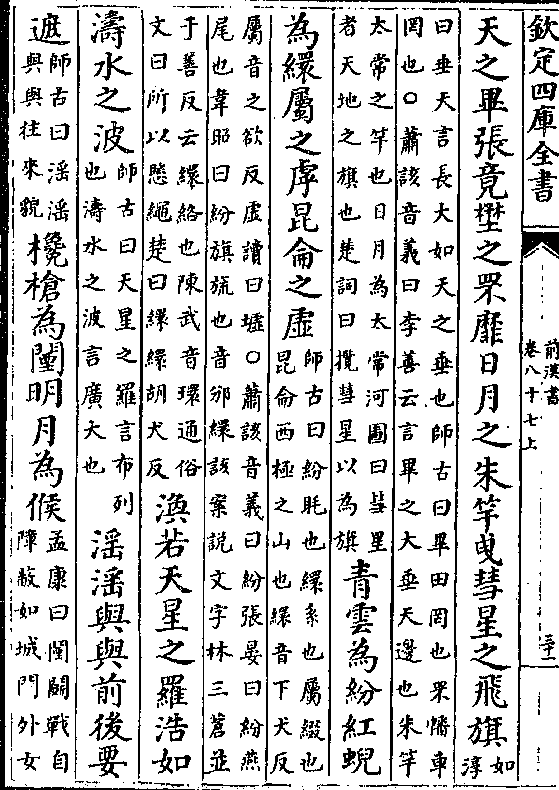 欽定四庫全書
前漢書
卷八十七上
天之畢張竟壄之罘靡日月之朱竿曳彗星之飛旗如
淳
曰垂天言長大如天之垂也師古曰畢田罔也罘幡車
罔也○蕭該音義曰李善云言畢之大垂天邊也朱竿
太常之竿也日月為太常河圖曰彗星
者天地之旗也楚詞曰攬彗星以為旗
青雲為紛紅蜺
為繯屬之虖昆侖之虛
師古曰紛眊也繯系也屬綴也
昆侖西極之山也繯音下犬反
屬音之欲反虛讀曰墟○蕭該音義曰紛張晏曰紛燕
尾也韋昭曰紛旗旒也音邠繯該案説文字林三蒼並
于善反云繯絡也陳武音環通俗
文曰所以懸繩楚曰繯繯胡犬反
渙若天星之羅浩如
濤水之波
師古曰天星之羅言布列
也濤水之波言廣大也
滛滛與與前後要
遮
師古曰滛滛
與與往來貌
欃槍為闉明月為候
孟康曰闉闘戰自
障蔽如城門外女